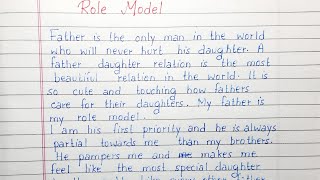 Role Model
Father is the only man in the world
who will never hurt his daughter. A
father daughter relation is the most
beautiful relation in the world. It is
so cute and touching how fathers
care for their daughters. My father is
my role model.
I am his first priority and he is always
partial towards me than my brothers.
He pampers me and makes me
feel like the most special daughter